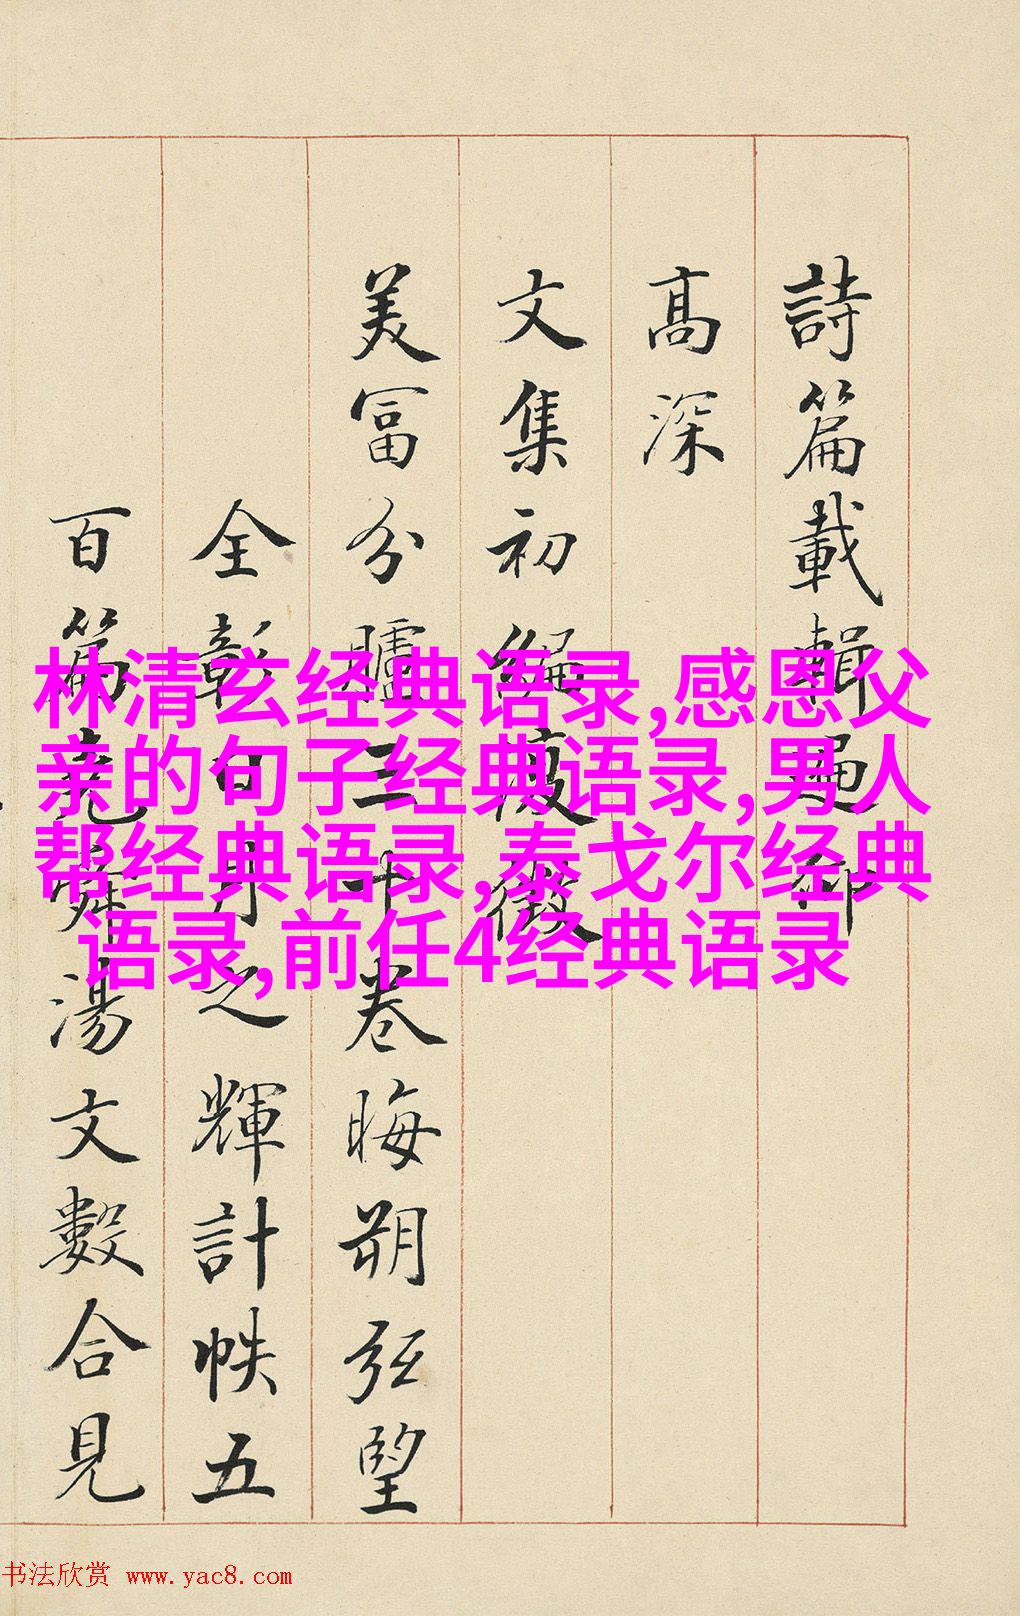 詩篇載輯遹仰
高深
文集初編復徵
美富分臚三十卷晦朔弦望
全彰日月之輝計帙五
百篇堯舜湯文數合見
林清玄经典语录,感恩父
亲的句子经典语录,男人
帮经典语录,泰戈尔经典
语录,前任4经典语录
书法欣赏 www.yac8.com